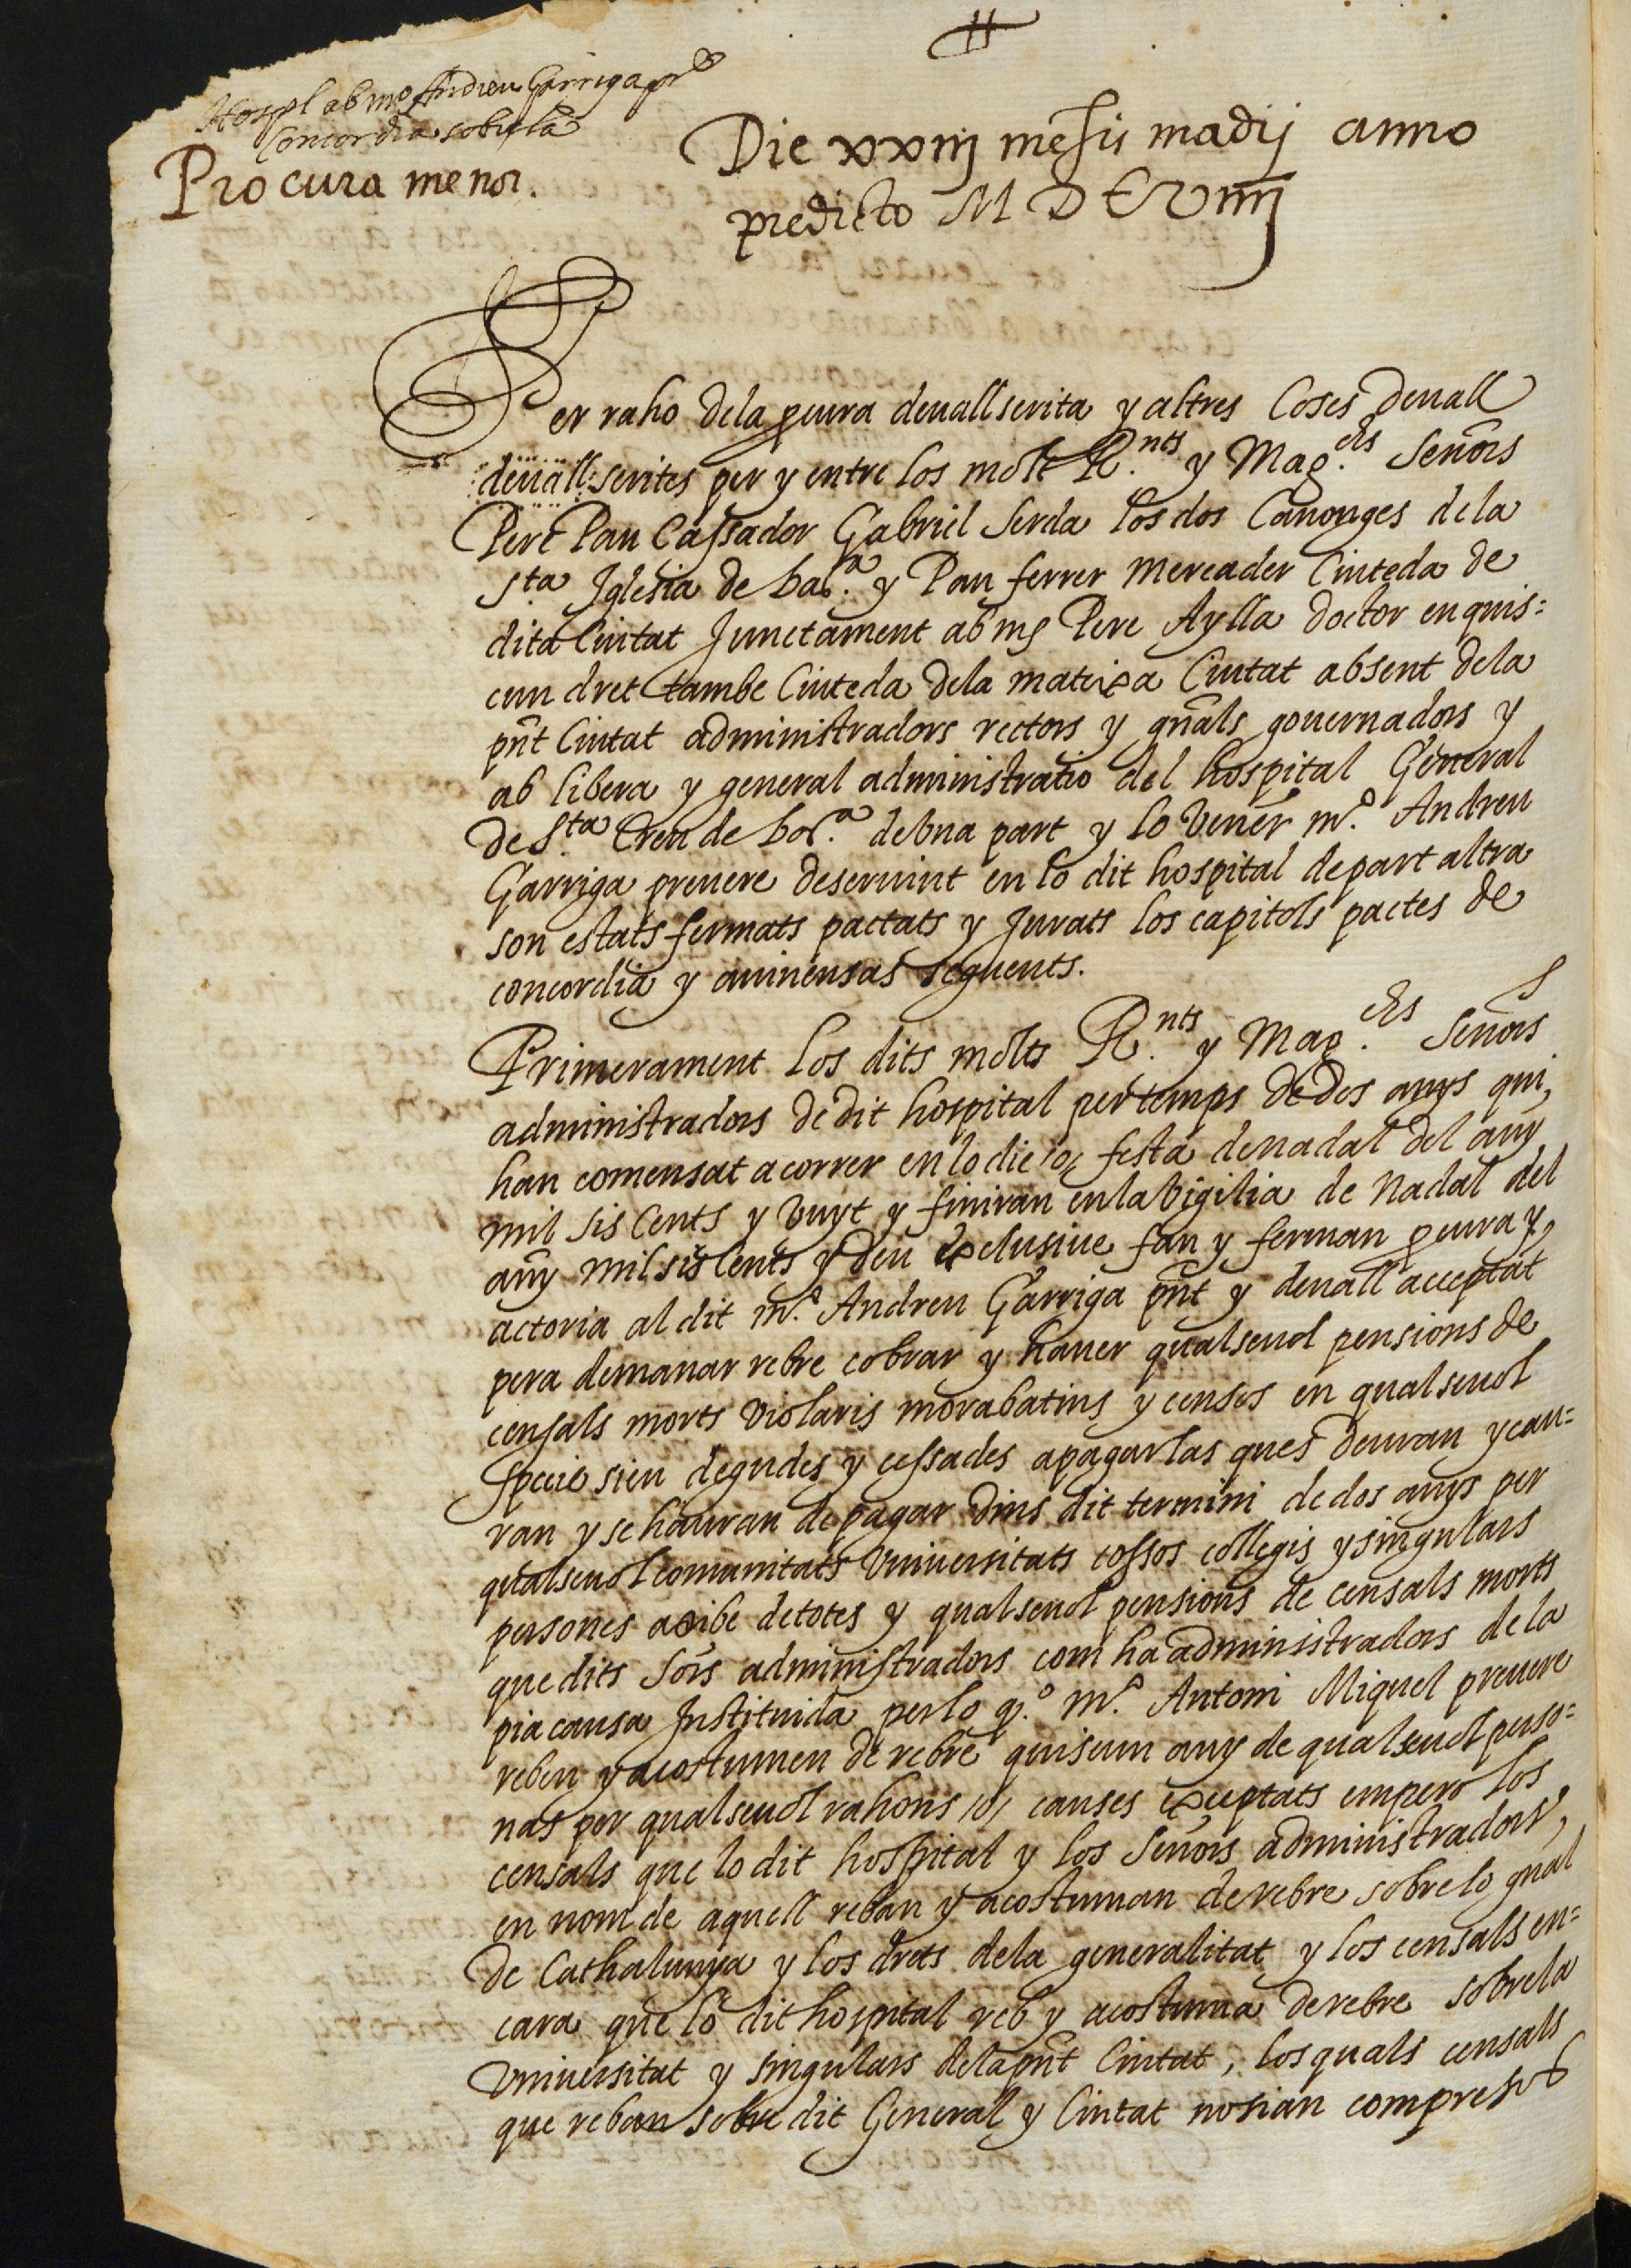 Hospl ab mo Andreu Garriga pre
Concordia sobre la
Procura menor.
Die xxiij mensis madij anno
predicto MDCViiij
Per raho dela pcura deuall scrita y altres Coses deuall
deuall scrites per y entre los molt R.nts y Mag.chs Señors
Pere Pau Cassador Gabriel Serda los dos Canonges dela
S.ta Iglesia de bar.a y Pau ferrer Mercader Ciuteda de
dita Ciutat Junctament ab mo Pere Aylla Doctor en quis=
cun dret tambe Ciuteda dela mateixa Ciutat absent dela
pnt Ciutat administradors rectors y gnals gouernadors y
ab libera y general administratio del hospital General
de S.ta Creu de bar.a de vna part y lo Vener m.o Andreu
Garriga preuere deseruint en lo dit hospital de part altra
son estats fermats pactats y Jurats los capitols pactes de
concordia y auinensas seguents.
Primerament los dits molts R.nts y Mag.chs Señors
administradors de dit hospital per temps de dos anys qui
han comensat a correr en lo die /o/ festa de nadal del any
mil sis Cents y Vuyt y finiran en la Vigilia de Nadal del
any mil sis Cents y deu exclusiue fan y ferman pcura y
actoria al dit m.o Andreu Garriga pnt y deuall acceptat
pera demanar rebre cobrar y hauer qualseuol pensions de
censals morts Violaris morabatins y censos en qualseuol
specie sien degudes y cessades a pagar las ques deuran y cau=
ran y se hauran de pagar dins dit termini de dos anys per
qualseuol comunitats Vniuersitats cossos collegis y singulars
persones axibe de totes y qualseuol pensions de censals morts
que dits Sors administradors com ha administradors de la
pia causa Instituida per lo q.o m.o Antoni Miquel preuere
reben y acostumen de rebre quiscun any de qualseuol perso=
nas per qualseuol rahons /o/ causes exceptats empero los
censals que lo dit hospital y los Señors administradors,
en nom de aquell reban y acostuman de rebre sobre lo gnal
de Cathalunya y los drets dela generalitat y los censals en=
cara que lo dit hospital reb y acostuma de rebre sobre la
Vniuersitat y singulars dela pnt Ciutat, los quals censals
que reban sobre dit General y Ciutat no sian compresos